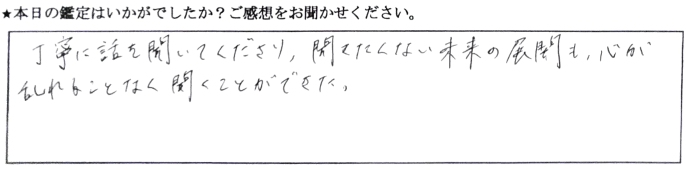 ★本日の鑑定はいかがでしたか?ご感想をお聞かせください。
丁寧に話を聞いてくださり,聞きたくない未来の展開も,心が
乱れることなく聞くことができた。